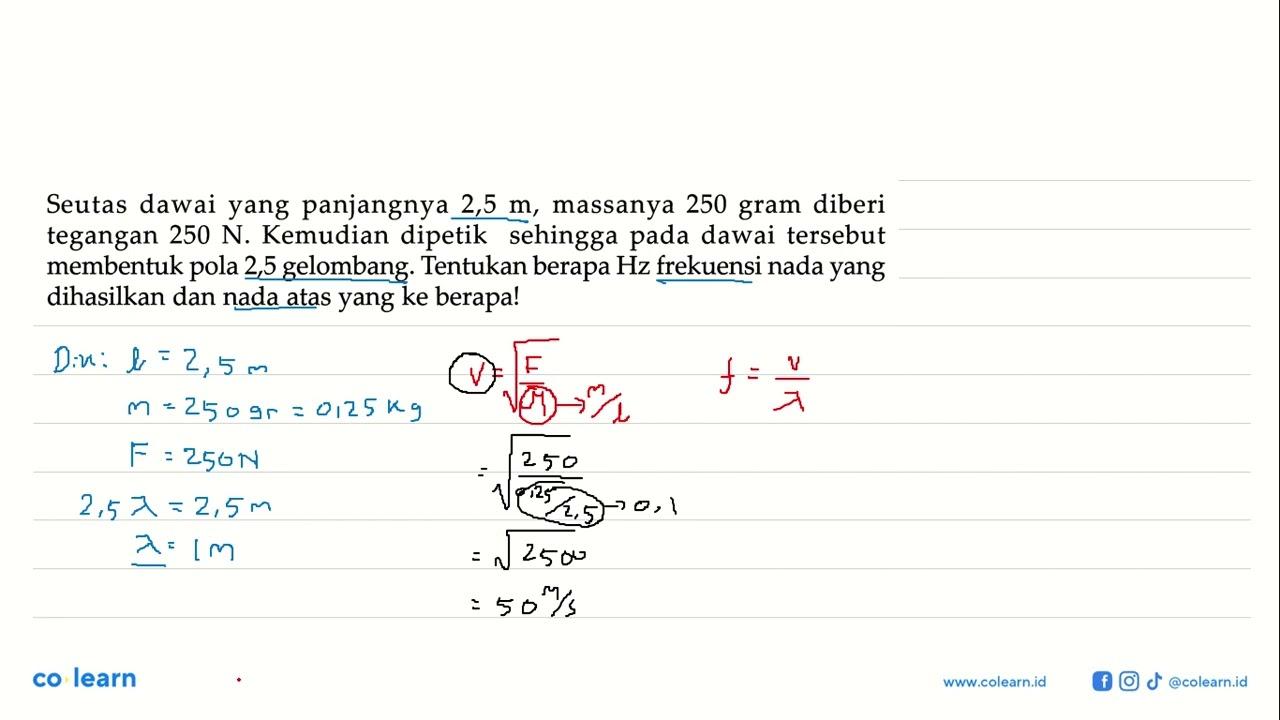 Seutas dawai yang panjangnya 2,5 m, massanya 250 gram diberi
tegangan 250 N. Kemudian dipetik sehingga pada dawai tersebut
membentuk pola 2,5 gelombang. Tentukan berapa Hz frekuensi nada yang
dihasilkan dan nada atas yang ke berapa!
Dik: l = 2,5 m
m = 250 gr = 0,25 kg
F = 250 N
2,5 λ = 2,5 m
λ = 1 m
V = √(F/μ) → m/l
= √(250/(0,25/2,5)) → 0,1
= √2500
= 50 m/s
f = v/λ
co learn
www.colearn.id
@colearn.id